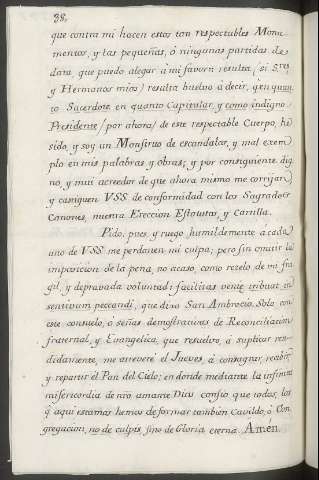 38,
que contra mi hacen estos tan respectables Monu
mentos, y las pequeñas, ó ningunas partidas de
data, que puedo alegar à mi favor: resulta (si S.res
y Hermanos mios) resulta buelvo a decir, q.e en quan
to Sacerdote en quanto Capitular, y como indigno
Presidente (por ahora) de este respectable Cuerpo, hé
sido, y soy un Monstruo de escandalos, y mal exem
plo en mis palabras y obras; y por consiguiente dig
no, y mui acreedor de que ahora mismo me corrijan
y castiguen VSS. de conformidad con los Sagrados
Canones, nuestra Ereccion, Estatutos, y Cartilla.
Pido, pues, y ruego humildemente à cada
uno de VSS. me perdonen mi culpa; pero sin omitir la
imposicion de la pena, no acaso, como rezelo de mi fra
gil, y depravada voluntad: facilitas veniæ tribuat in
sentivum peccandi, que dixo San Ambrocio. Solo con
este consuelo, ó señas demostrativas de Reconciliacion
fraternal, y Evangelica, que resuelvo, à suplicar ren
didamente, me atreveré el Jueves, á consagrar, recibir
y repartir el Pan del Cielo; en donde mediante la infinita
misericordia de nro amante Dios confio que todos, los
q.e aqui estamos hemos de formar tambien Cavildo, ó Con
gregacion, no de culpis, sino de Gloria eterna. Amen.